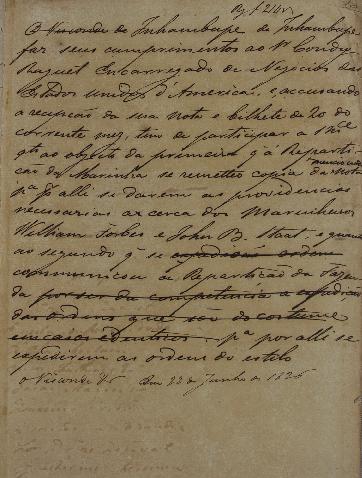 O Visconde de Inhambupe de Inhambupe
faz seus cumprimentos ao Sr Condy
Raguet Encarregado de Negocios dos
Estados unidos d'America, e accusando
a recepção da sua Nota e bilhete de 20 do
corrente mez, tem de participar a
qto ao objecto da primeira q á Reparti-
ção da Marinha se remetteo copia da Nota
pa q alli se darem as providencias
necessarias acerca dos Marinheiros
William Forbes e John B. e quanto
ao segundo q se expedirão ordens
communicou a Repartição da Fazen
da por ser da competencia a expedição
das ordens que são do costume
em casos identicos. pa por alli se
expedirem as ordens do estilo
o Visconde &c Em 22 de Junho de 1826